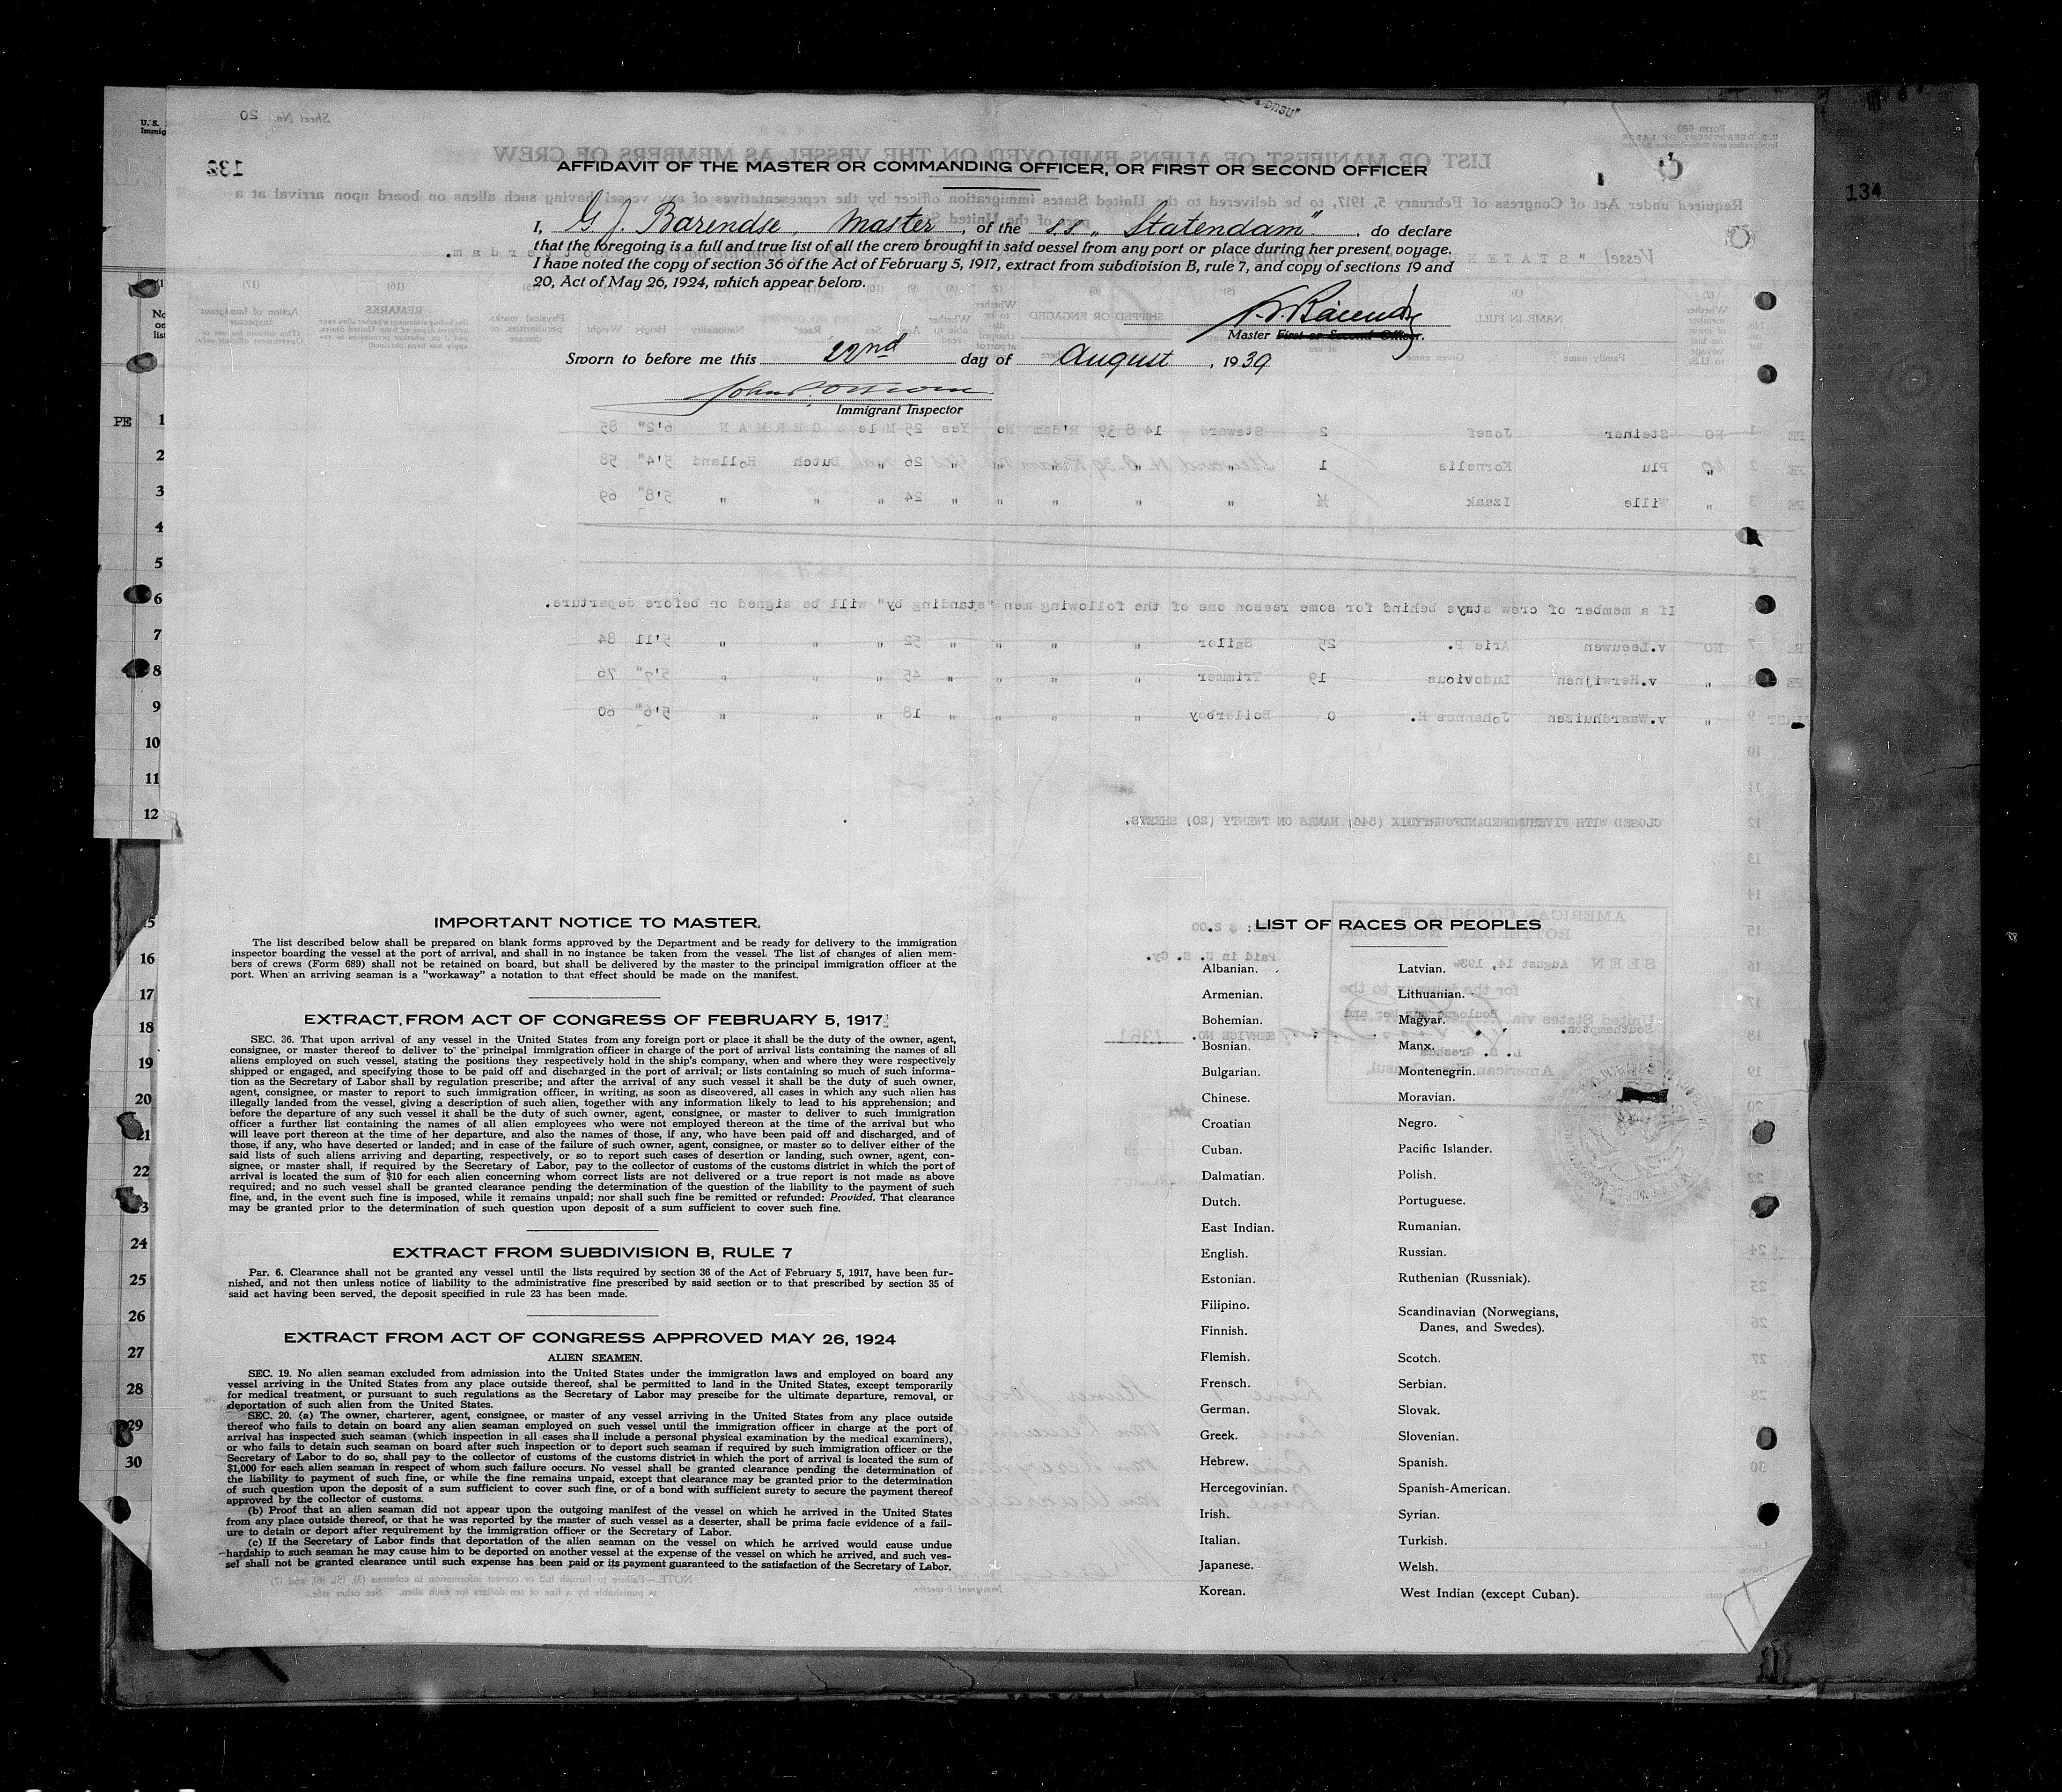 134
U. S.
Immig
AFFIDAVIT OF THE MASTER OR COMMANDING OFFICER, OR FIRST OR SECOND OFFICER
I, G. J. Barendse, Master, of the s.s. „Statendam", do declare
that the foregoing is a full and true list of all the crew brought in said vessel from any port or place during her present voyage.
I have noted the copy of section 36 of the Act of February 5, 1917, extract from subdivision B, rule 7, and copy of sections 19 and
20, Act of May 26, 1924, which appear below.
Master First or Second Officer.
Sworn to before me this 22nd day of August, 1939
Immigrant Inspector
Sheet No. 20
132
LIST OR MANIFEST OF ALIENS EMPLOYED ON THE VESSEL AS MEMBERS OF CREW
Required under Act of Congress of February 5, 1917, to be delivered to the United States immigration officer by the representatives of any vessel having such aliens on board upon arrival at a
port of the United States
PE 1 NO Steiner Josef 2 Steward 14 8 39 R'dam No Yes 25 GERMAN 6'2" 85
PE 2 Plu Kornelis 1 26 Dutch Holland 5'4" 58
PE 3 " Wille Izaak " " " " " 24 " " " 5'8" 69
If a member of crew stays behind for some reason one of the following men "standing by" will be signed on before departure.
7 NO v.Leeuwen Arie P. 25 Sailor " " " " 52 " " " 5'11 84
8 " v.Herwijnen Ludovicus 19 Trimmer " " " " 45 " " " 5'7" 70
9 " v.Waardhuizen Johannes H. 0 Boilerboy " " " " 18 " " " 5'6" 60
CLOSED WITH FIVEHUNDREDANDFOURTYSIX (546) NAMES ON TWENTY (20) SHEETS.
PE 1
2
3
4
5
6
7
8
9
10
11
12
16
17
18
19
20
21
22
24
25
26
27
28
29
30
IMPORTANT NOTICE TO MASTER.
The list described below shall be prepared on blank forms approved by the Department and be ready for delivery to the immigration
inspector boarding the vessel at the port of arrival, and shall in no instance be taken from the vessel. The list of changes of alien mem-
bers of crews (Form 689) shall not be retained on board, but shall be delivered by the master to the principal immigration officer at the
port. When an arriving seaman is a "workaway" a notation to that effect should be made on the manifest.
EXTRACT FROM ACT OF CONGRESS OF FEBRUARY 5, 1917
SEC. 36. That upon arrival of any vessel in the United States from any foreign port or place it shall be the duty of the owner, agent,
consignee, or master thereof to deliver to the principal immigration officer in charge of the port of arrival lists containing the names of all
aliens employed on such vessel, stating the positions they respectively hold in the ship's company, when and where they were respectively
shipped or engaged, and specifying those to be paid off and discharged in the port of arrival; or lists containing so much of such informa-
tion as the Secretary of Labor shall by regulation prescribe; and after the arrival of any such vessel it shall be the duty of such owner,
agent, consignee, or master to report to such immigration officer, in writing, as soon as discovered, all cases in which any such alien has
illegally landed from the vessel, giving a description of such alien, together with any information likely to lead to his apprehension; and
before the departure of any such vessel it shall be the duty of such owner, agent, consignee, or master to deliver to such immigration
officer a further list containing the names of all alien employees who were not employed thereon at the time of the arrival but who
will leave port thereon at the time of her departure, and also the names of those, if any, who have been paid off and discharged, and of
those, if any, who have deserted or landed; and in case of the failure of such owner, agent, consignee, or master so to deliver either of the
said lists of such aliens arriving and departing, respectively, or so to report such cases of desertion or landing, such owner, agent, con-
signee, or master shall, if required by the Secretary of Labor, pay to the collector of customs of the customs district in which the port of
arrival is located the sum of $10 for each alien concerning whom correct lists are not delivered or a true report is not made as above
required; and no such vessel shall be granted clearance pending the determination of the question of the liability to the payment of such
fine, and, in the event such fine is imposed, while it remains unpaid; nor shall such fine be remitted or refunded: Provided. That clearance
may be granted prior to the determination of such question upon deposit of a sum sufficient to cover such fine.
EXTRACT FROM SUBDIVISION B, RULE 7
Par. 6. Clearance shall not be granted any vessel until the lists required by section 36 of the Act of February 5, 1917, have been fur-
nished, and not then unless notice of liability to the administrative fine prescribed by said section or to that prescribed by section 35 of
said act having been served, the deposit specified in rule 23 has been made.
EXTRACT FROM ACT OF CONGRESS APPROVED MAY 26, 1924
ALIEN SEAMEN.
SEC. 19. No alien seaman excluded from admission into the United States under the immigration laws and employed on board any
vessel arriving in the United States from any place outside thereof, shal be permitted to land in the United States, except temporarily
for medical treatment, or pursuant to such regulations as the Secretary of Labor may prescibe for the ultimate departure, removal, or
deportation of such alien from the United States.
SEC. 20. (a) The owner, charterer, agent, consignee, or master of any vessel arriving in the United States from any place outside
thereof who fails to detain on board any alien seaman employed on such vessel until the immigration officer in charge at the port of
arrival has inspected such seaman (which inspection in all cases shall include a personal physical examination by the medical examiners),
or who fails to detain such seaman on board after such inspection or to deport such seaman if required by such immigration officer or the
Secretary of Labor to do so, shall pay to the collector of customs of the customs district in which the port of arrival is located the sum of
$1,000 for each alien seaman in respect of whom such failure occurs. No vessel shall be granted clearance pending the determination of
the liability to payment of such fine, or while the fine remains unpaid, except that clearance may be granted prior to the determination
of such question upon the deposit of a sum sufficient to cover such fine, or of a bond with sufficient surety to secure the payment thereof
approved by the collector of customs.
(b) Proof that an alien seaman did not appear upon the outgoing manifest of the vessel on which he arrived in the United States
from any place outside thereof, or that he was reported by the master of such vessel as a deserter, shall be prima facie evidence of a fail-
ure to detain or deport after requirement by the immigration officer or the Secretary of Labor.
(c) If the Secretary of Labor finds that deportation of the alien seaman on the vessel on which he arrived would cause undue
hardship to such seaman he may cause him to be deported on another vessel at the expense of the vessel on which he arrived, and such ves-
sel shall not be granted clearance until such expense has been paid or its payment guaranteed to the satisfaction of the Secretary of Labor.
LIST OF RACES OR PEOPLES
Albanian.
Armenian.
Bohemian.
Bosnian.
Bulgarian.
Chinese.
Croatian
Cuban.
Dalmatian.
Dutch.
East Indian.
English.
Estonian.
Filipino.
Finnish.
Flemish.
Frensch.
German.
Greek.
Hebrew.
Hercegovinian.
Irish.
Italian.
Japanese.
Korean.
Latvian.
Lithuanian.
Magyar.
Manx.
Montenegrin.
Moravian.
Negro.
Pacific Islander.
Polish.
Portuguese.
Rumanian.
Russian.
Ruthenian (Russniak).
Scandinavian (Norwegians,
Danes, and Swedes).
Scotch.
Serbian.
Slovak.
Slovenian.
Spanish.
Spanish-American.
Syrian.
Turkish.
Welsh.
West Indian (except Cuban).